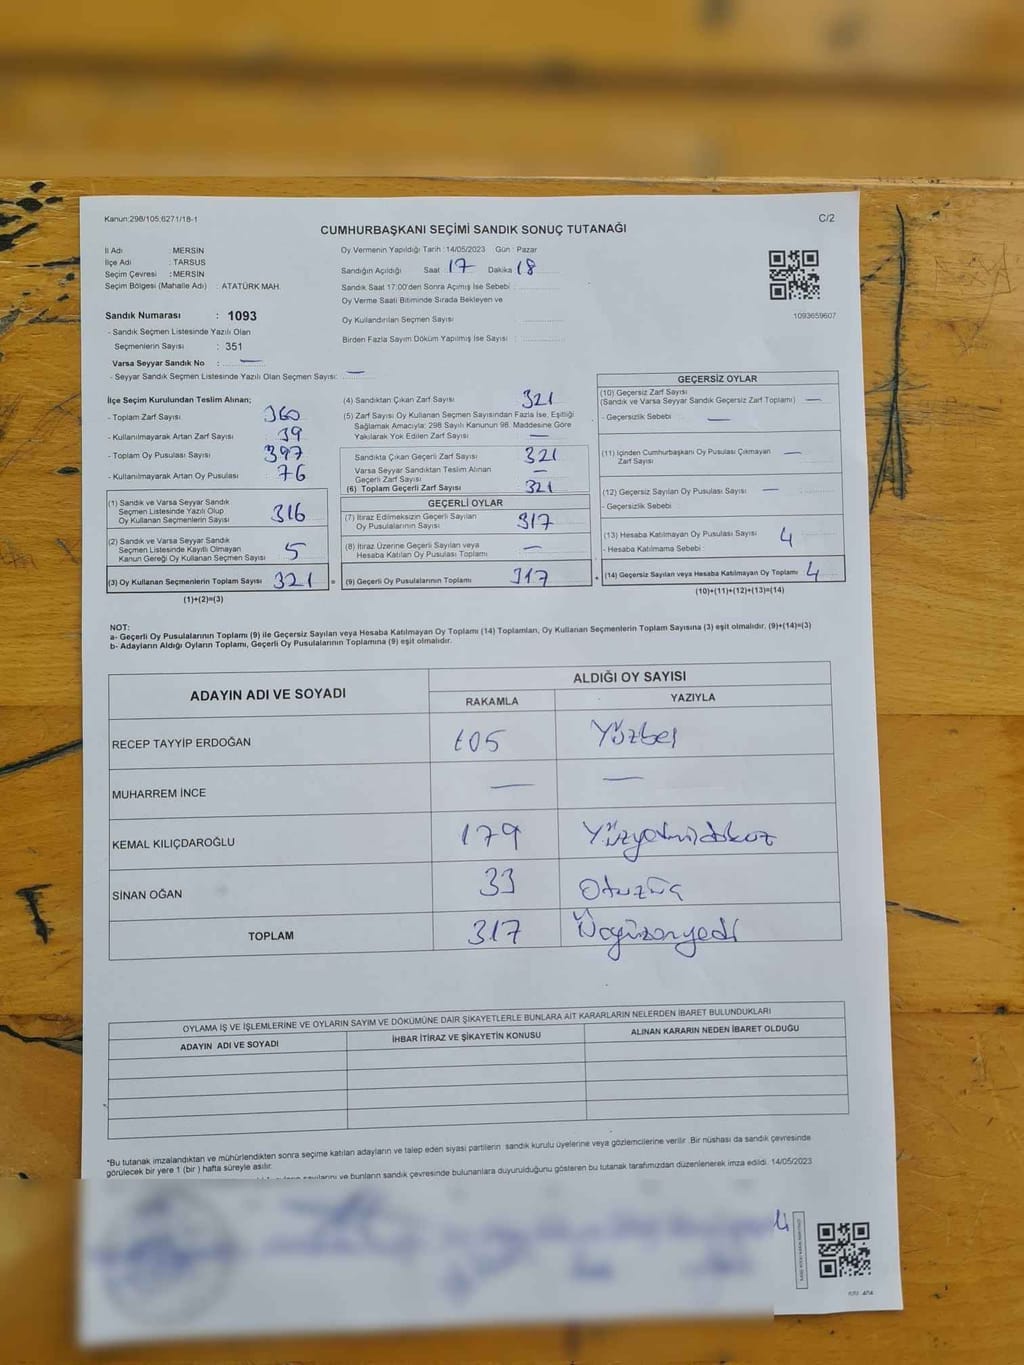 Kanun:298/105:6271/18-1
C/2
CUMHURBAŞKANI SEÇİMİ SANDIK SONUÇ TUTANAĞI
İl Adı : MERSİN
İlçe Adı : TARSUS
Seçim Çevresi : MERSİN
Seçim Bölgesi (Mahalle Adı) : ATATÜRK MAH.
Sandık Numarası : 1093
- Sandık Seçmen Listesinde Yazılı Olan
Seçmenlerin Sayısı : 351
Varsa Seyyar Sandık No : —
- Seyyar Sandık Seçmen Listesinde Yazılı Olan Seçmen Sayısı: —
Oy Vermenin Yapıldığı Tarih : 14/05/2023 Gün : Pazar
Sandığın Açıldığı Saat 17 Dakika 18
Sandık Saat 17:00'den Sonra Açımış İse Sebebi :
Oy Verme Saati Bitiminde Sırada Bekleyen ve
Oy Kullandırılan Seçmen Sayısı
Birden Fazla Sayım Döküm Yapılmış İse Sayısı :
1093659607
İlçe Seçim Kurulundan Teslim Alınan;
- Toplam Zarf Sayısı 360
- Kullanılmayarak Artan Zarf Sayısı 39
- Toplam Oy Pusulası Sayısı 397
- Kullanılmayarak Artan Oy Pusulası 76
(1) Sandık ve Varsa Seyyar Sandık
Seçmen Listesinde Yazılı Olup
Oy Kullanan Seçmenlerin Sayısı 316
(2) Sandık ve Varsa Seyyar Sandık
Seçmen Listesinde Kayıtlı Olmayan
Kanun Gereği Oy Kullanan Seçmen Sayısı 5
(3) Oy Kullanan Seçmenlerin Toplam Sayısı 321 =
(1)+(2)=(3)
(4) Sandıktan Çıkan Zarf Sayısı 321
(5) Zarf Sayısı Oy Kullanan Seçmen Sayısından Fazla İse, Eşitliği
Sağlamak Amacıyla; 298 Sayılı Kanunun 98. Maddesine Göre
Yakılarak Yok Edilen Zarf Sayısı —
Sandıkta Çıkan Geçerli Zarf Sayısı 321
Varsa Seyyar Sandıktan Teslim Alınan
Geçerli Zarf Sayısı —
(6) Toplam Geçerli Zarf Sayısı 321
GEÇERLİ OYLAR
(7) İtiraz Edilmeksizin Geçerli Sayılan
Oy Pusulalarının Sayısı 317
(8) İtiraz Üzerine Geçerli Sayılan veya
Hesaba Katılan Oy Pusulası Toplamı —
(9) Geçerli Oy Pusulalarının Toplamı 317 +
GEÇERSİZ OYLAR
(10) Geçersiz Zarf Sayısı
(Sandık ve Varsa Seyyar Sandık Geçersiz Zarf Toplamı) —
- Geçersizlik Sebebi —
(11) İçinden Cumhurbaşkanı Oy Pusulası Çıkmayan —
Zarf Sayısı
(12) Geçersiz Sayılan Oy Pusulası Sayısı —
- Geçersizlik Sebebi :
(13) Hesaba Katılmayan Oy Pusulası Sayısı 4
- Hesaba Katılmama Sebebi :
(14) Geçersiz Sayılan veya Hesaba Katılmayan Oy Toplamı 4
(10)+(11)+(12)+(13)=(14)
NOT:
a- Geçerli Oy Pusulalarının Toplamı (9) ile Geçersiz Sayılan veya Hesaba Katılmayan Oy Toplamı (14) Toplamları, Oy Kullanan Seçmenlerin Toplam Sayısına (3) eşit olmalıdır. (9)+(14)=(3)
b- Adayların Aldığı Oyların Toplamı, Geçerli Oy Pusulalarının Toplamına (9) eşit olmalıdır.
ADAYIN ADI VE SOYADI ALDIĞI OY SAYISI
RAKAMLA YAZIYLA
RECEP TAYYİP ERDOĞAN 105 Yüzbeş
MUHARREM İNCE — —
KEMAL KILIÇDAROĞLU 179 Yüzyetmişdokuz
SİNAN OĞAN 33 Otuzüç
TOPLAM 317 Üçyüzonyedi
OYLAMA İŞ VE İŞLEMLERİNE VE OYLARIN SAYIM VE DÖKÜMÜNE DAİR ŞİKAYETLERLE BUNLARA AİT KARARLARIN NELERDEN İBARET BULUNDUKLARI
ADAYIN ADI VE SOYADI İHBAR İTİRAZ VE ŞİKAYETİN KONUSU ALINAN KARARIN NEDEN İBARET OLDUĞU
*Bu tutanak imzalandıktan ve mühürlendikten sonra seçime katılan adayların ve talep eden siyasi partilerin sandık kurulu üyelerine veya gözlemcilerine verilir. Bir nüshası da sandık çevresinde
görülecek bir yere 1 (bir ) hafta süreyle asılır.
sayılarını ve bunların sandık çevresinde bulunanlara duyurulduğunu gösteren bu tutanak tarafımızdan düzenlenerek imza edildi. 14/05/2023